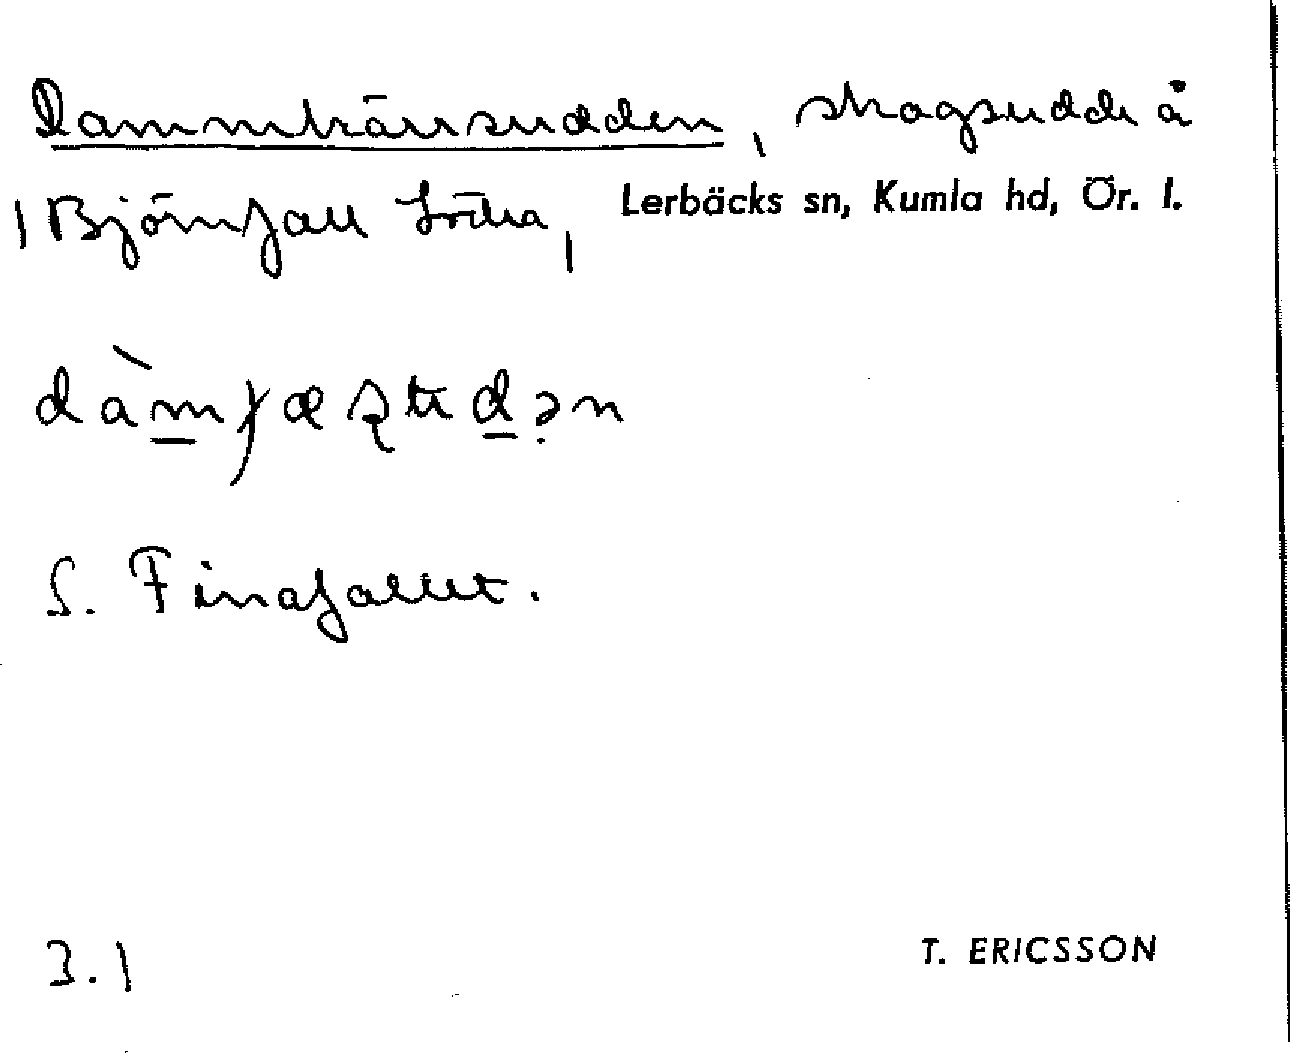 Dammkärrsudden, skogsudde å
Björnfall Södra, Lerbäcks sn, Kumla hd, Ör. l.
S. Finafallet.
3.1
T. ERICSSON